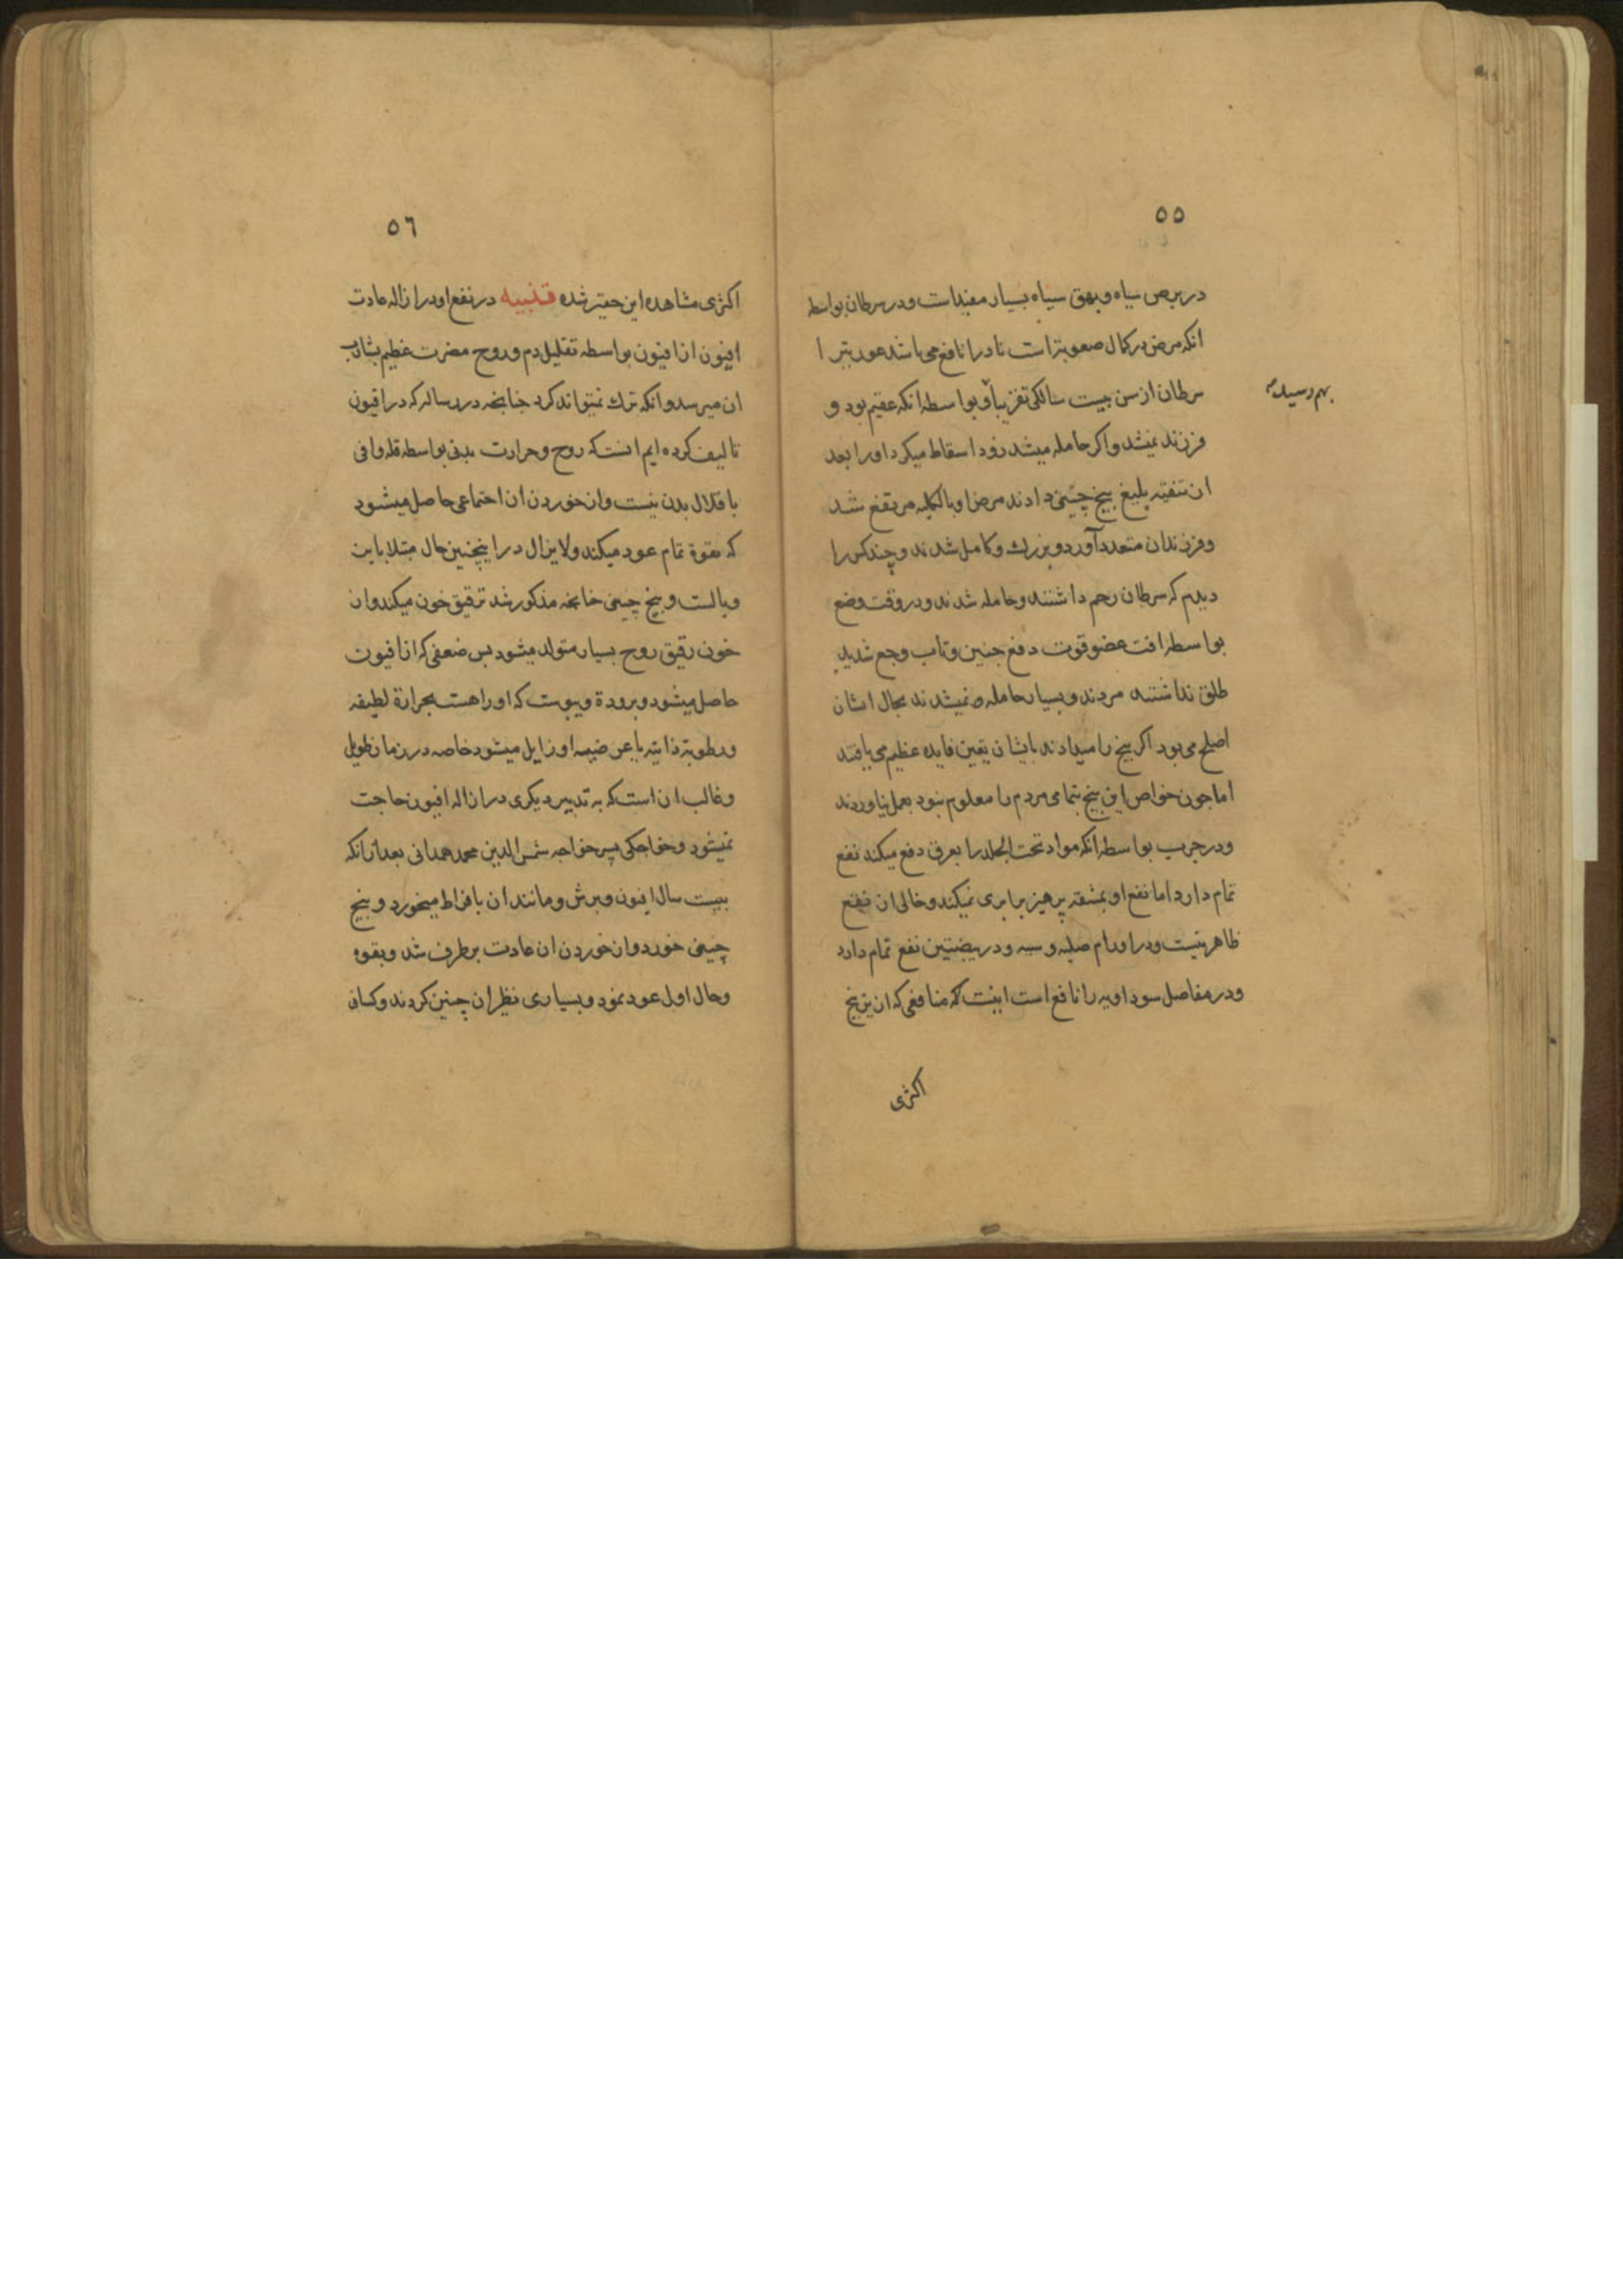 ٥٥
در برص سیاه و بهق سیاه بسیار مفید است و در سرطان بواسطه
انکه مرض در کمال صعوبتر است نادرا نافع می باشد عورتیرا
سرطان از سن بیست سالکی تقریباً و بواسطه انکه عقیم بود و
بهم رسیده
فرزند نمیشد و اکر حامله میشد زود اسقاط میکرد او را بعد
از تنقیه بلیغ بیخ چینی دادند مرض او بالکلیه مرتفع شد
و فرزندان متعدد آورد و بزرك و کامل شدند و چند کس را
دیدم که سرطان رحم داشتند و حامله شدند و در وقت وضع
بواسطه افت عضو قوت دفع جنین و تاب وجع شدید
طلق نداشتند مردند و بسیار حامله نمیشدند بحال ایشان
اصلح می بود اکر بیخ را میدادند بایشان یقین فایده عظیم می یافتند
اما چون خواص این بیخ بتمامی مردم را معلوم نبود بعمل نیاوردند
و در جرب بواسطه انکه مواد تحت الجلد را بعرق دفع میکند نفع
تمام دارد اما نفع او بمشقه پرهیز برابری نمیکند و خالی از نفع
ظاهر نیست و در اورام صلبه و در بیضتین نفع تمام دارد
و در مفاصل سوداویه را نافع است اینست که منافعی که ازین بیخ
اکثری
٥٦
اکثری مشاهده این حقیر شده تنبیه در نفع او در ازاله عادت
افیون از افیون بواسطه تقلیل دم و روح مضرت عظیم بشارب
ان میرسد و انکه ترك نمیتواند کرد چنانچه در رساله که در افیون
تالیف کرده ایم انست که روح و حرارت بدنی بواسطه قله وافی
باقلال بدن نیست و از خوردن ان اجتماعی حاصل میشود
که بقوة تمام عود میکند و لا یزال در اینچنین حال مبتلا باین
وبالست و بیخ چینی چنانچه مذکور شد ترقیق خون میکند و از
خون رقیق روح بسیار متولد میشود پس ضعفی که از افیون
حاصل میشود و برودة و یبوست که او را هست بحرارة لطیفه
و رطوبة ذاتیه با عرضیه او زایل میشود خاصه در زمان طویل
و غالب ان است که به تدبیر دیکری در ازاله افیون حاجت
نمیشود و خواجکی پسر خواجه شمس الدین محمد همدانی بعد از انکه
بیست سال افیون و برش و مانند ان بافراط میخورد و بیخ
چینی خورد و از خوردن ان عادت بر طرف شد و بقوه
و حال اول عود نمود و بسیاری نظیر ان چنین کردند و کسانی